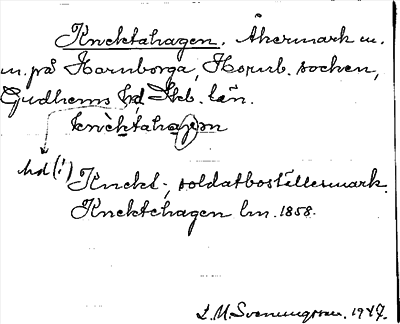 Knektahagen. Åkermark m.
m. på Hornborga, Hornb. socken,
Gudhems hd Skb. län.
knektahagen
hd (!)
Knekt-, soldatboställesmark.
Knektehagen lm. 1858.
L. M. Svenungsson. 1947.